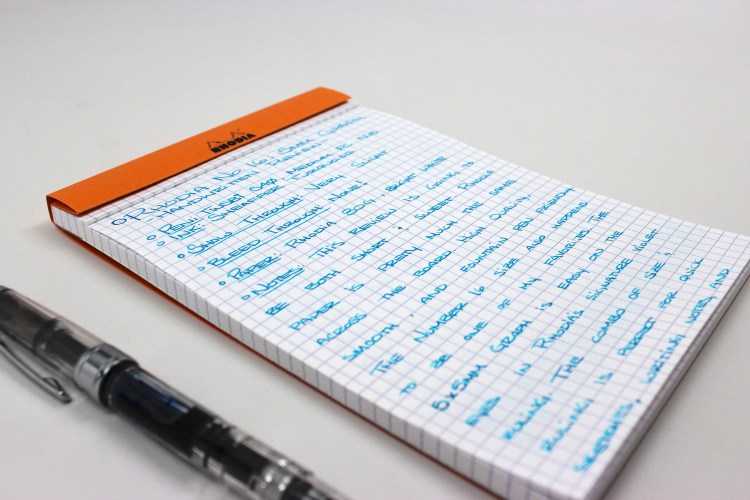 RHODIA
RHODIA No. 16 5MM GRAPH
HANDWRITTEN REVIEW
PEN: TWSBI 540, MEDIUM #5 NIB
INK: SHEAFFER TURQUOISE
SHOW THROUGH: VERY SLIGHT
BLEED THROUGH: NONE!
PAPER: RHODIA 80G, BRIGHT WHITE
NOTES: THIS REVIEW IS GOING TO
BE BOTH SHORT & SWEET. RHODIA
PAPER IS PRETTY MUCH THE SAME
ACROSS THE BOARD. HIGH QUALITY,
SMOOTH, AND FOUNTAIN PEN FRIENDLY.
THE NUMBER 16 SIZE ALSO HAPPENS
TO BE ONE OF MY FAVORITES. THE
5X5MM GRAPH IS EASY ON THE
EYES IN RHODIA'S SIGNATURE VIOLET
RULING. THE COMBO OF SIZE &
RULING IS PERFECT FOR QUICK
SKETCHES, WRITING NOTES, AND